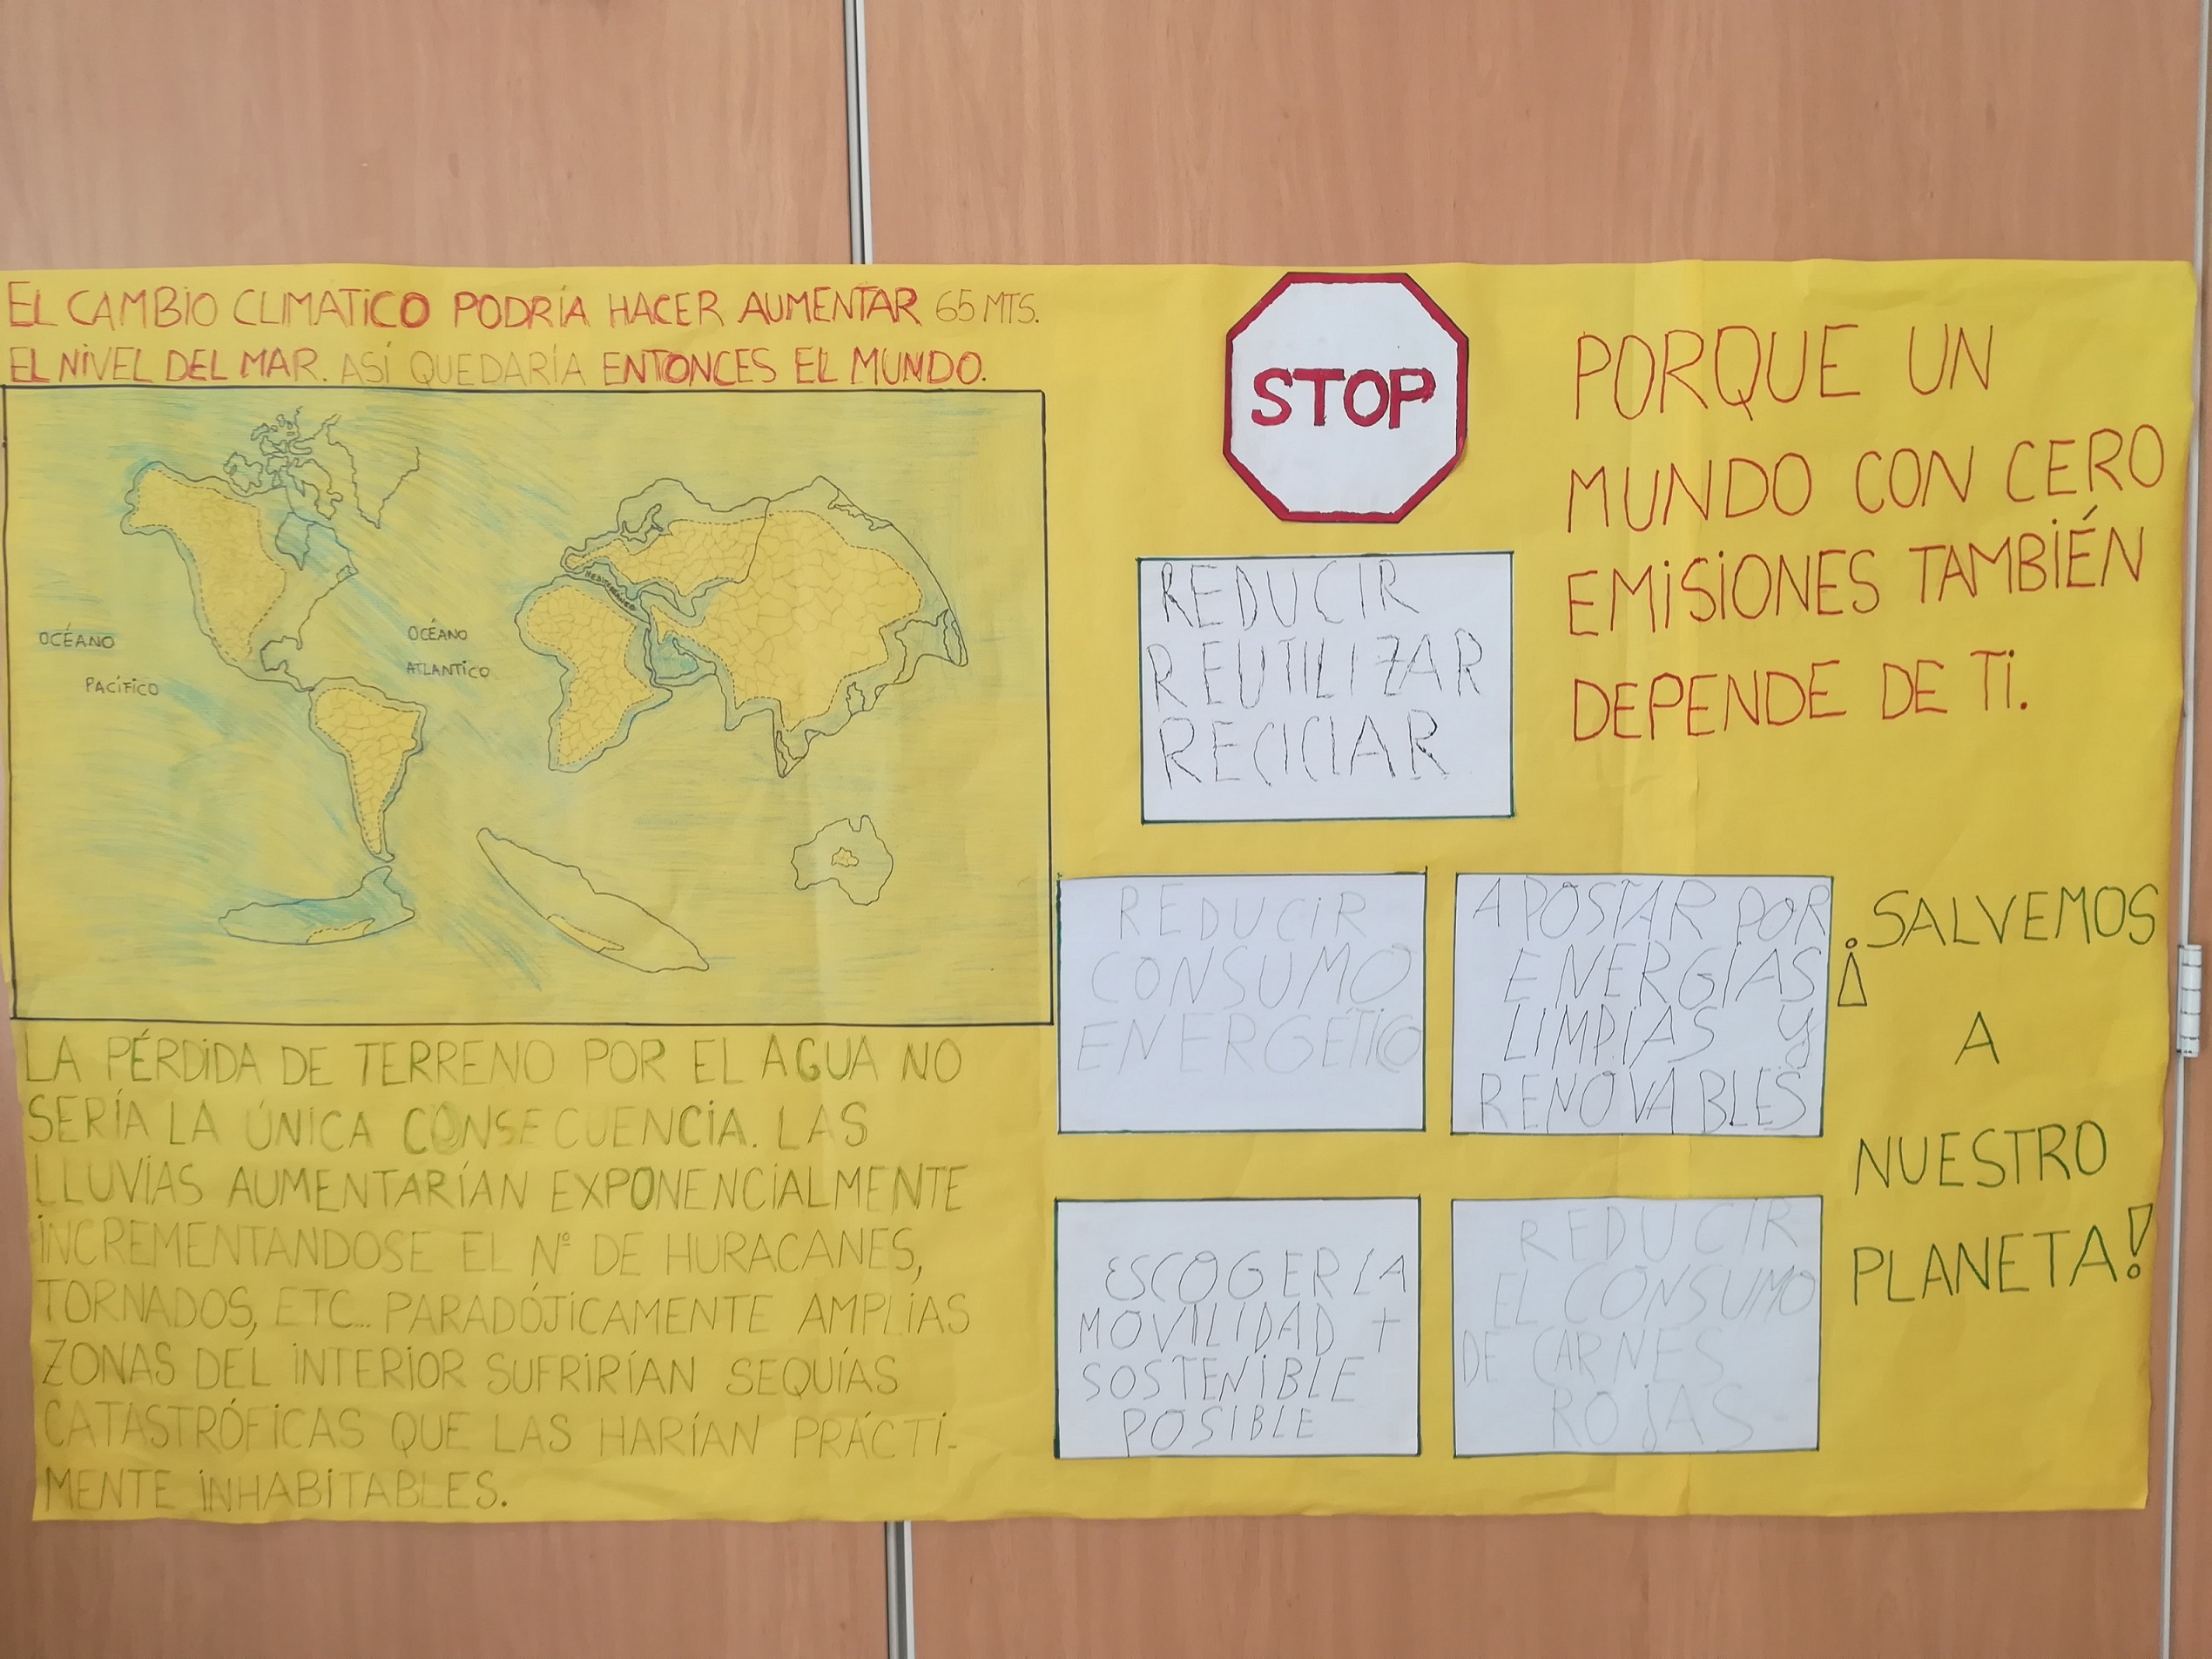 EL CAMBIO CLIMÁTICO PODRÍA HACER AUMENTAR 65 MTS.
EL NIVEL DEL MAR. ASÍ QUEDARÍA ENTONCES EL MUNDO.
OCÉANO
PACÍFICO
OCÉANO
ATLANTICO
MEDITERRÁNEO
LA PÉRDIDA DE TERRENO POR EL AGUA NO
SERÍA LA ÚNICA CONSECUENCIA. LAS
LLUVIAS AUMENTARÍAN EXPONENCIALMENTE
INCREMENTANDOSE EL Nº DE HURACANES,
TORNADOS, ETC... PARADÓJICAMENTE AMPLIAS
ZONAS DEL INTERIOR SUFRIRÍAN SEQUÍAS
CATASTRÓFICAS QUE LAS HARÍAN PRÁCTI-
MENTE INHABITABLES.
STOP
REDUCIR
REUTILIZAR
RECICLAR
REDUCIR
CONSUMO
ENERGÉTICO
APOSTAR POR
ENERGÍAS
LIMPIAS Y
RENOVABLES
ESCOGER LA
MOVILIDAD +
SOSTENIBLE
POSIBLE
REDUCIR
EL CONSUMO
DE CARNES
ROJAS
PORQUE UN
MUNDO CON CERO
EMISIONES TAMBIÉN
DEPENDE DE TI.
¡SALVEMOS
A
NUESTRO
PLANETA!